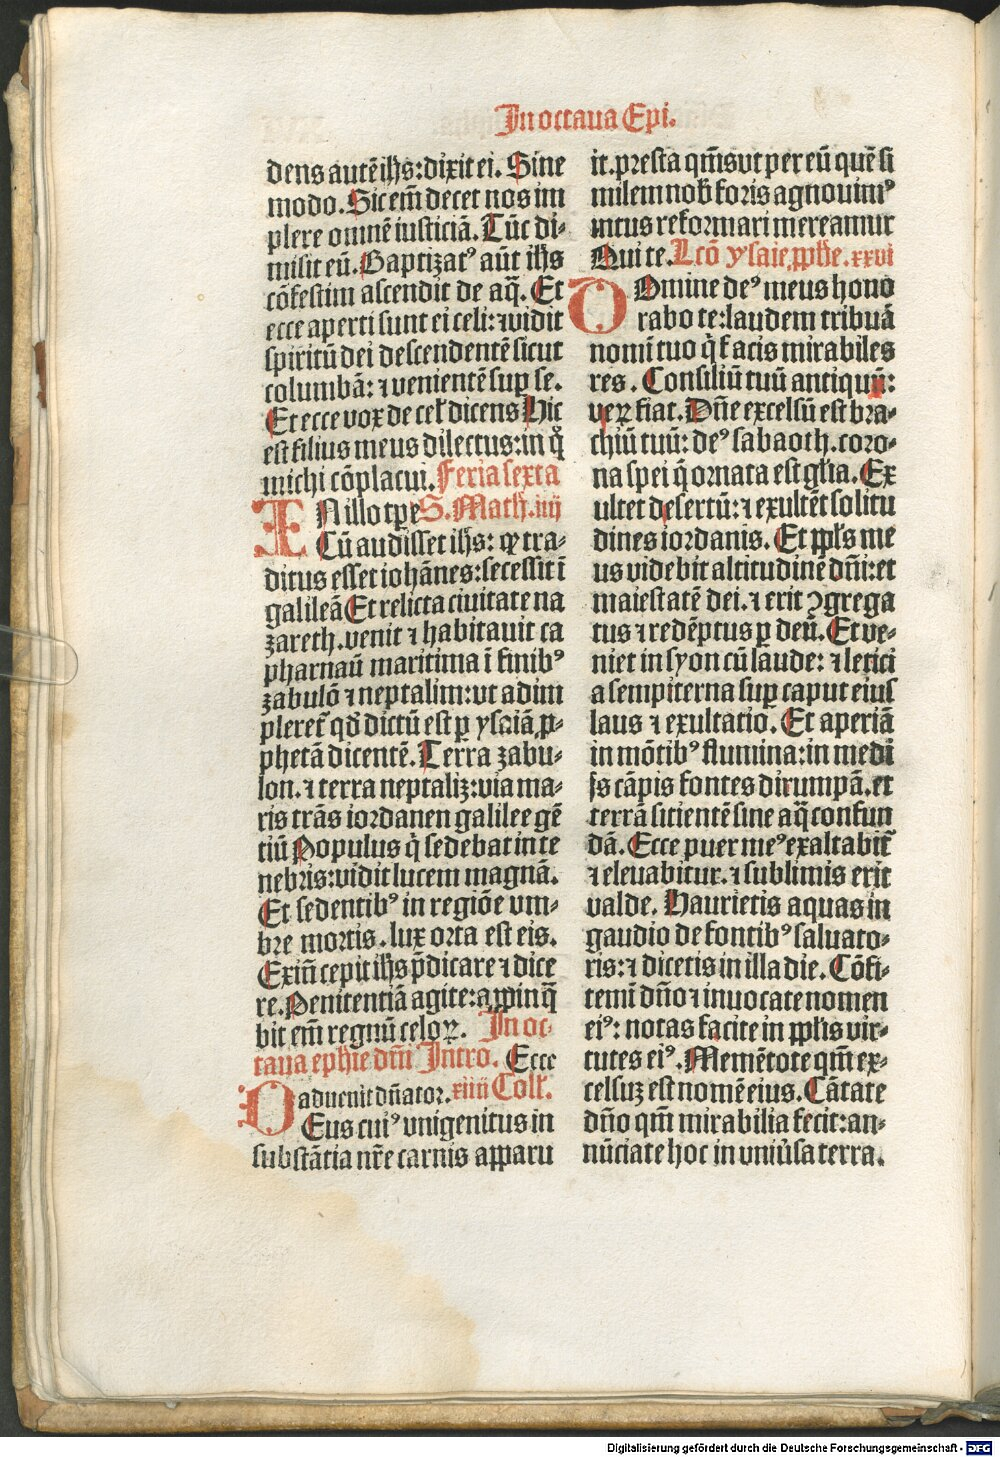 In octaua Epi.
dens autē ihs: dixit ei. Sine
modo. Sic em̄ decet nos im
plere omnē iusticiā. Tūc di⸗
misit eū. Baptizatꝰ aūt ihs
cōfestim ascendit de aq̄. Et
ecce aperti sunt ei celi: ⁊ vidit
spiritū dei descendentē sicut
columbā: ⁊ venientē suꝑ se.
Et ecce vox de cel̛ dicens Hic
est filius meus dilectus: in q̊
michi cōplacui. Feria sexta
IN illo tꝑe S. Math. iiij
Cū audisset ihs: ꝙ tra⸗
ditus esset iohānes: secessit ī
galileā Et relicta ciuitate na
zareth. venit ⁊ habitauit ca
pharnaū maritima ī finibꝰ
zabulō ⁊ neptalim: vt adim
pleret᷑ qd̄ dictū est ꝑ ysaiā ꝓ⸗
phetā dicentē. Terra zabu⸗
lon. ⁊ terra neptaliz: via ma⸗
ris trās iordanen galilee gē
tiū Populus q̇ sedebat in te
nebris: vidit lucem magnā.
Et sedentibꝰ in regiōe vm⸗
bre mortis. lux orta est eis.
Exiū cepit ihs p̄dicare ⁊ dice
re. Penitentiā agite: aꝓpinq̄
bit em̄ regnū celoꝝ. In oc⸗
taua ephie dn̄i Intro. Ecce
aduenit dn̄ator. xiiij Coll̛.
DEus cuiꝰ vnigenitus in
substātia nr̄e carnis apparu
it. presta q̄m sut per eū quē si
milem nob̛ foris agnouimꝰ
intus reformari mereamur
Qui te. Lcō ysaie ꝓphe. xxvi
DOmine deꝰ meus hono
rabo te: laudem tribuā
nomī tuo q̇ facis mirabiles
res. Consiliū tuū antiquū:
veꝝ fiat. Dn̄e excelsū est bra⸗
chiū tuū: deꝰ sabaoth. coro⸗
na spei q̄ ornata est gl̄ia. Ex
ultet desertū: ⁊ exultēt solitu
dines iordanis. Et ppl̄s me
us videbit altitudinē dn̄i: et
maiestatē dei. ⁊ erit ꝯgrega
tus ⁊ redēptus ꝑ deū. Et ve⸗
niet in syon cū laude: ⁊ letici
a sempiterna suꝑ caput eius
laus ⁊ exultatio. Et aperiā
in mōtibꝰ flumina: in medi
js cāpis fontes dirumpā. et
terrā sitientē sine aq̄ confun
dā. Ecce puer meꝰ exaltabit᷑
⁊ eleuabitur. ⁊ sublimis erit
valde. Haurietis aquas in
gaudio de fontibꝰ saluato⸗
ris: ⁊ dicetis in illa die. Cōfi⸗
temī dn̄o ⁊ inuocate nomen
eiꝰ: notas facite in ppl̄is vir⸗
tutes eiꝰ. Memētote q̄m ex⸗
celsuz est nomē eius. Cātate
dn̄o q̄m mirabilia fecit: an⸗
nūciate hoc in vniūsa terra.
Digitalisierung gefördert durch die Deutsche Forschungsgemeinschaft - DFG